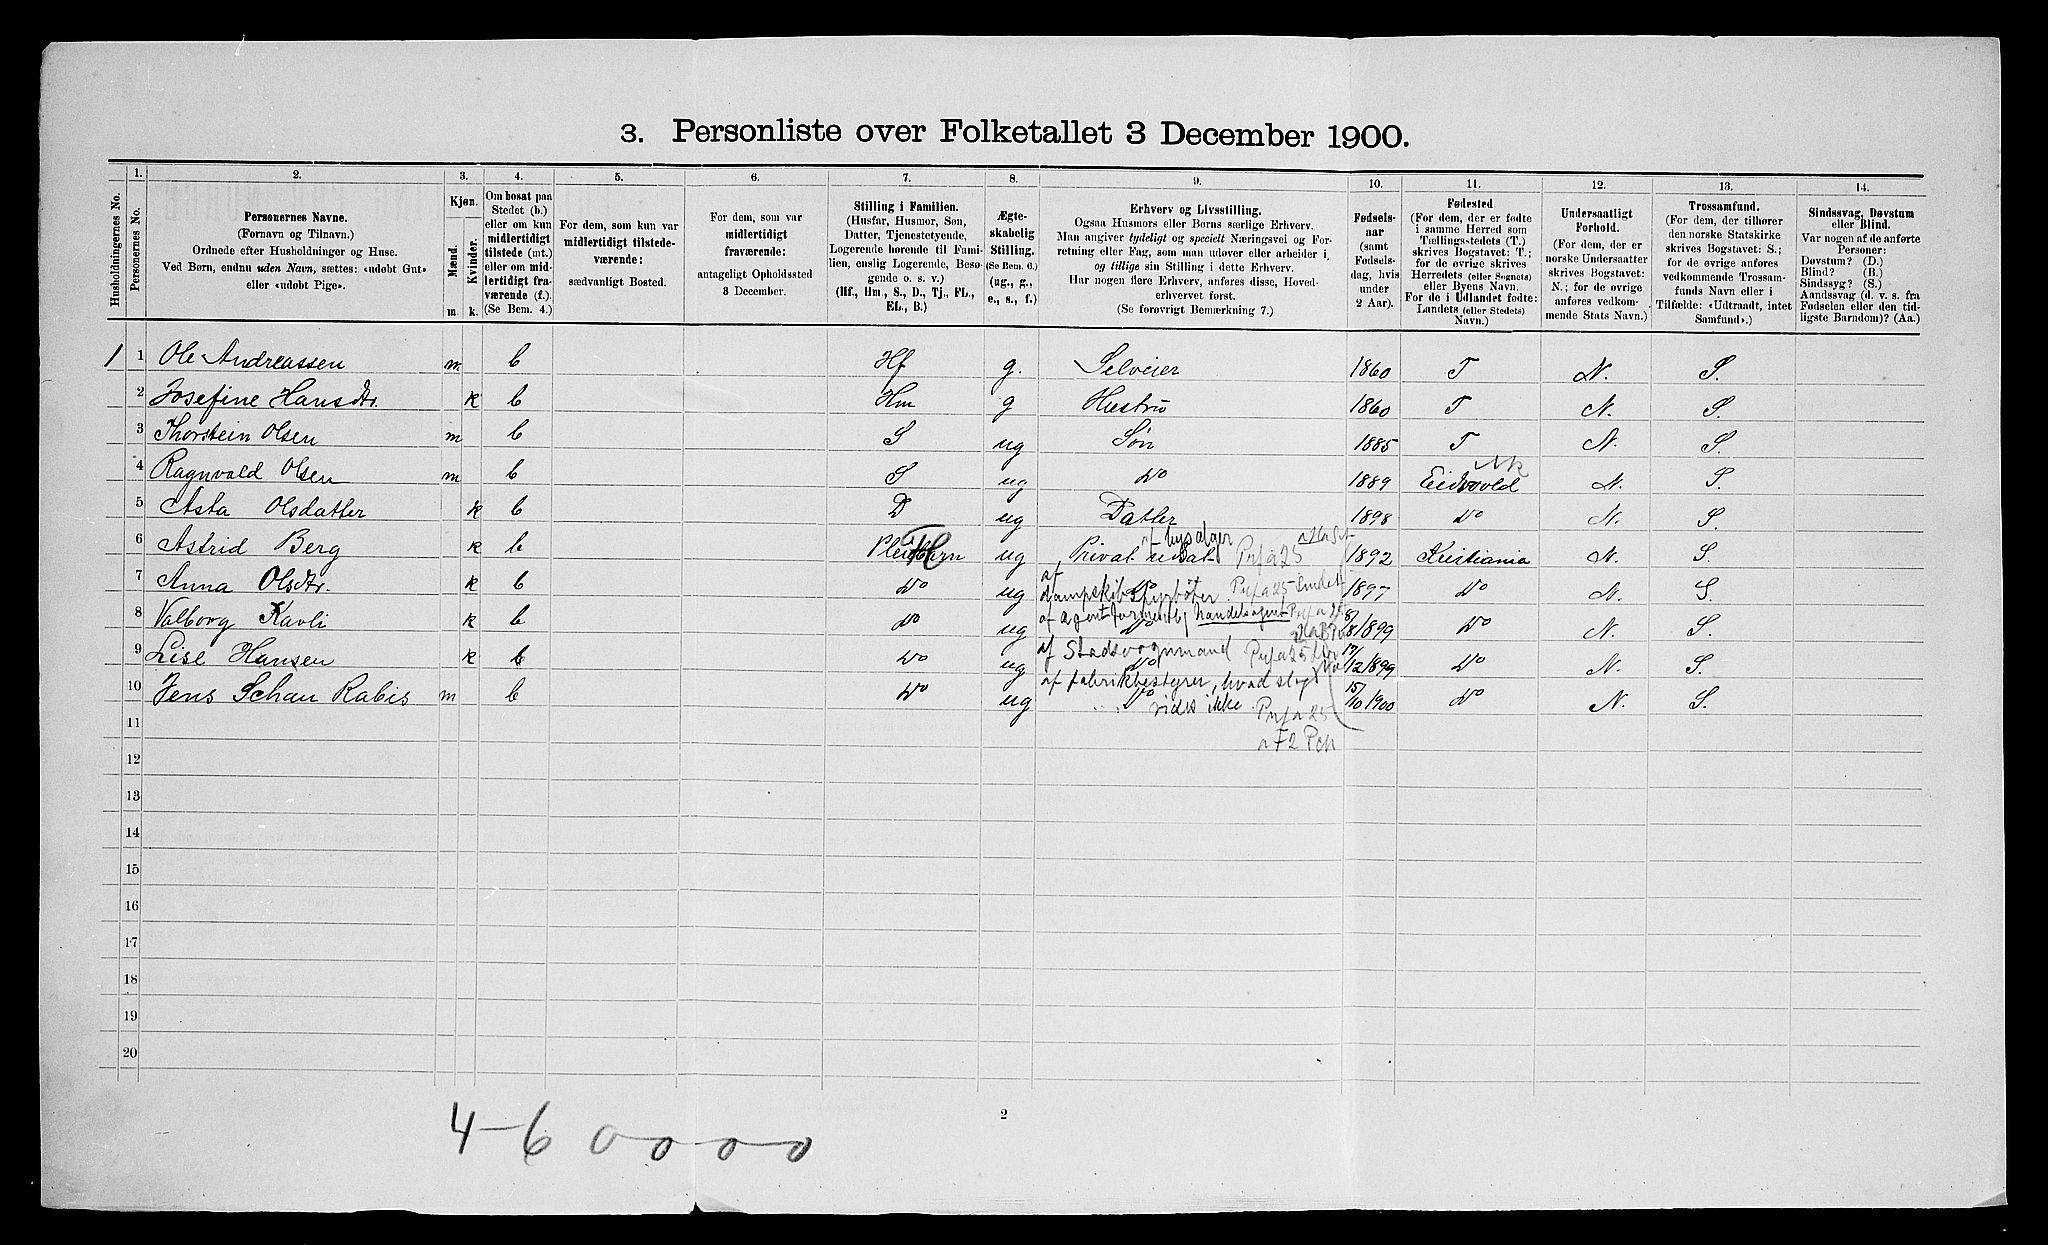 3. Personliste over Folketallet 3 December 1900.
Husholdningernes No.
1.
Personernes No.
2.
Personernes Navne.
(Fornavn og Tilnavn.)
Ordnede efter Husholdninger og Huse.
Ved Børn, endnu uden Navn, sættes: «udobt Gut»
eller «udobt Pige».
3.
Kjøn.
Mænd.
Kvinder.
m.
k.
4.
Om bosat paa
Stedet (b.)
eller om kun
midlertidigt
tilstede (mt.)
eller om mid-
lertidigt fra-
værende (f.).
(Se Bem. 4.)
5.
For dem, som kun var
midlertidigt tilstede-
værende:
sædvanligt Bosted.
6.
For dem, som var
midlertidigt
fraværende:
antageligt Opholdssted
3 December.
7.
Stilling i Familien.
(Husfar, Husmor, Søn,
Datter, Tjenestetyende,
Logerende hørende til Fami-
lien, enslig Logerende, Besø-
gende o. s. v.)
(Hf., Hm., S., D., Tj., FL.,
EL., B.)
8.
Ægte-
skabelig
Stilling.
(Se Bem. 6.)
(ug., g.,
e., s., f.)
9.
Erhverv og Livsstilling.
Ogsaa Husmors eller Børns særlige Erhverv.
Man angiver tydeligt og specielt Næringsvei og For-
retning eller Fag, som man udøver eller arbeider i,
og tillige sin Stilling i dette Erhverv.
Har nogen flere Erhverv, anføres disse, Hoved-
erhvervet først.
(Se forøvrigt Bemærkning 7.)
10.
Fødsels-
aar
(samt
Fødsels-
dag, hvis
under
2 Aar).
11.
Fødested
(For dem, der er fødte
i samme Herred som
Tællingsstedets (T.)
skrives Bogstavet: T.;
for de øvrige skrives
Herredets (eller Sognets)
eller Byens Navn.
For de i Udlandet fødte:
Landets (eller Stedets)
Navn.)
12.
Undersaatligt
Forhold.
(For dem, der er
norske Undersaatter
skrives Bogstavet:
N.; for de øvrige
anføres vedkom-
mende Stats Navn.)
13.
Trossamfund.
(For dem, der tilhører
den norske Statskirke
skrives Bogstavet: S.;
for de øvrige anføres
vedkommende Trossam-
funds Navn eller i
Tilfælde: «Udtraadt, intet
Samfund».)
14.
Sindssvag, Døvstum
eller Blind.
Var nogen af de anførte
Personer:
Døvstum? (D.)
Blind? (B.)
Sindssyg? (S.)
Aandssvag (d. v. s. fra
Fødselen eller den tid-
ligste Barndom)? (Aa.)
1 1 Ole Andreassen m. b Hf g. Selveier 1860 T N. S.
2 Josefine Hansdtr. k b Hm g Hustru 1860 T N. S.
3 Thorstein Olsen m b S ug Søn 1885 T N. S.
4 Ragnvald Olsen m b S ug Do 1889 Eidsvold N. S.
5 Asta Olsdatter k b D ug Datter 1898 Do N. S.
af bysælger
6 Astrid Berg k b Pleiebarn ug Privat udsat Pufa25 1892 Kristiania N. S.
af
7 Anna Olsdtr. k b Do ug Dampskibsfyrbøter Pufa25 1897 Do N. S.
8 Valborg Kavli k b Do ug af agent Handelsagent 8/8 1899 Do N. S.
9 Lise Hansen k b Do ug af Stadsvognmand Pufa25 17/12 1899 Do N. S.
af fabrikbestyrer, hvad slags
10 Jens Schau Rabis m b Do ug Do vides ikke 15/10 1900 Do N. S.
Pufa25
11
12
13
14
15
16
17
18
19
20
2
4-6 0 0 0 0